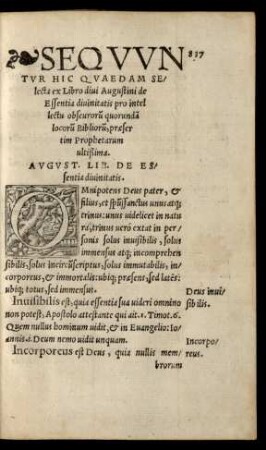 SEQVVN 837
TVR HIC QVAEDAM SE-
lecta ex Libro diui Augustini de
Essentia diuinitatis pro intel
lectu obscurorũ quorundã
locorũ Bibliorũ, præser
tim Prophetarum
utilissima.
AVGVST. LIB. DE ES-
sentia diuinitatis.
OMnipotens Deus pater, &
filius, et spũssanctus unus atq;
trinus: unus uidelicet in natu
ra, trinus uero extat in per-
sonis solus inuisibilis, solus
immensus atq; incomprehen
sibilis, solus incircũscriptus, solus immutabilis, in
corporeus, & immortalis: ubiq; præsens, sed latẽs:
ubiq; totus, sed immensus.
Inuisibilis est, quia essentia sua uideri omnino Deus inui
non potest, Apostolo attestante qui ait. 1. Timot. 6. sibilis.
Quem nullus hominum uidit, & in Euangelio: Io
annis. 1. Deum nemo uidit unquam. Incorpo-
Incorporeus est Deus, quia nullis mem reus.
brorum